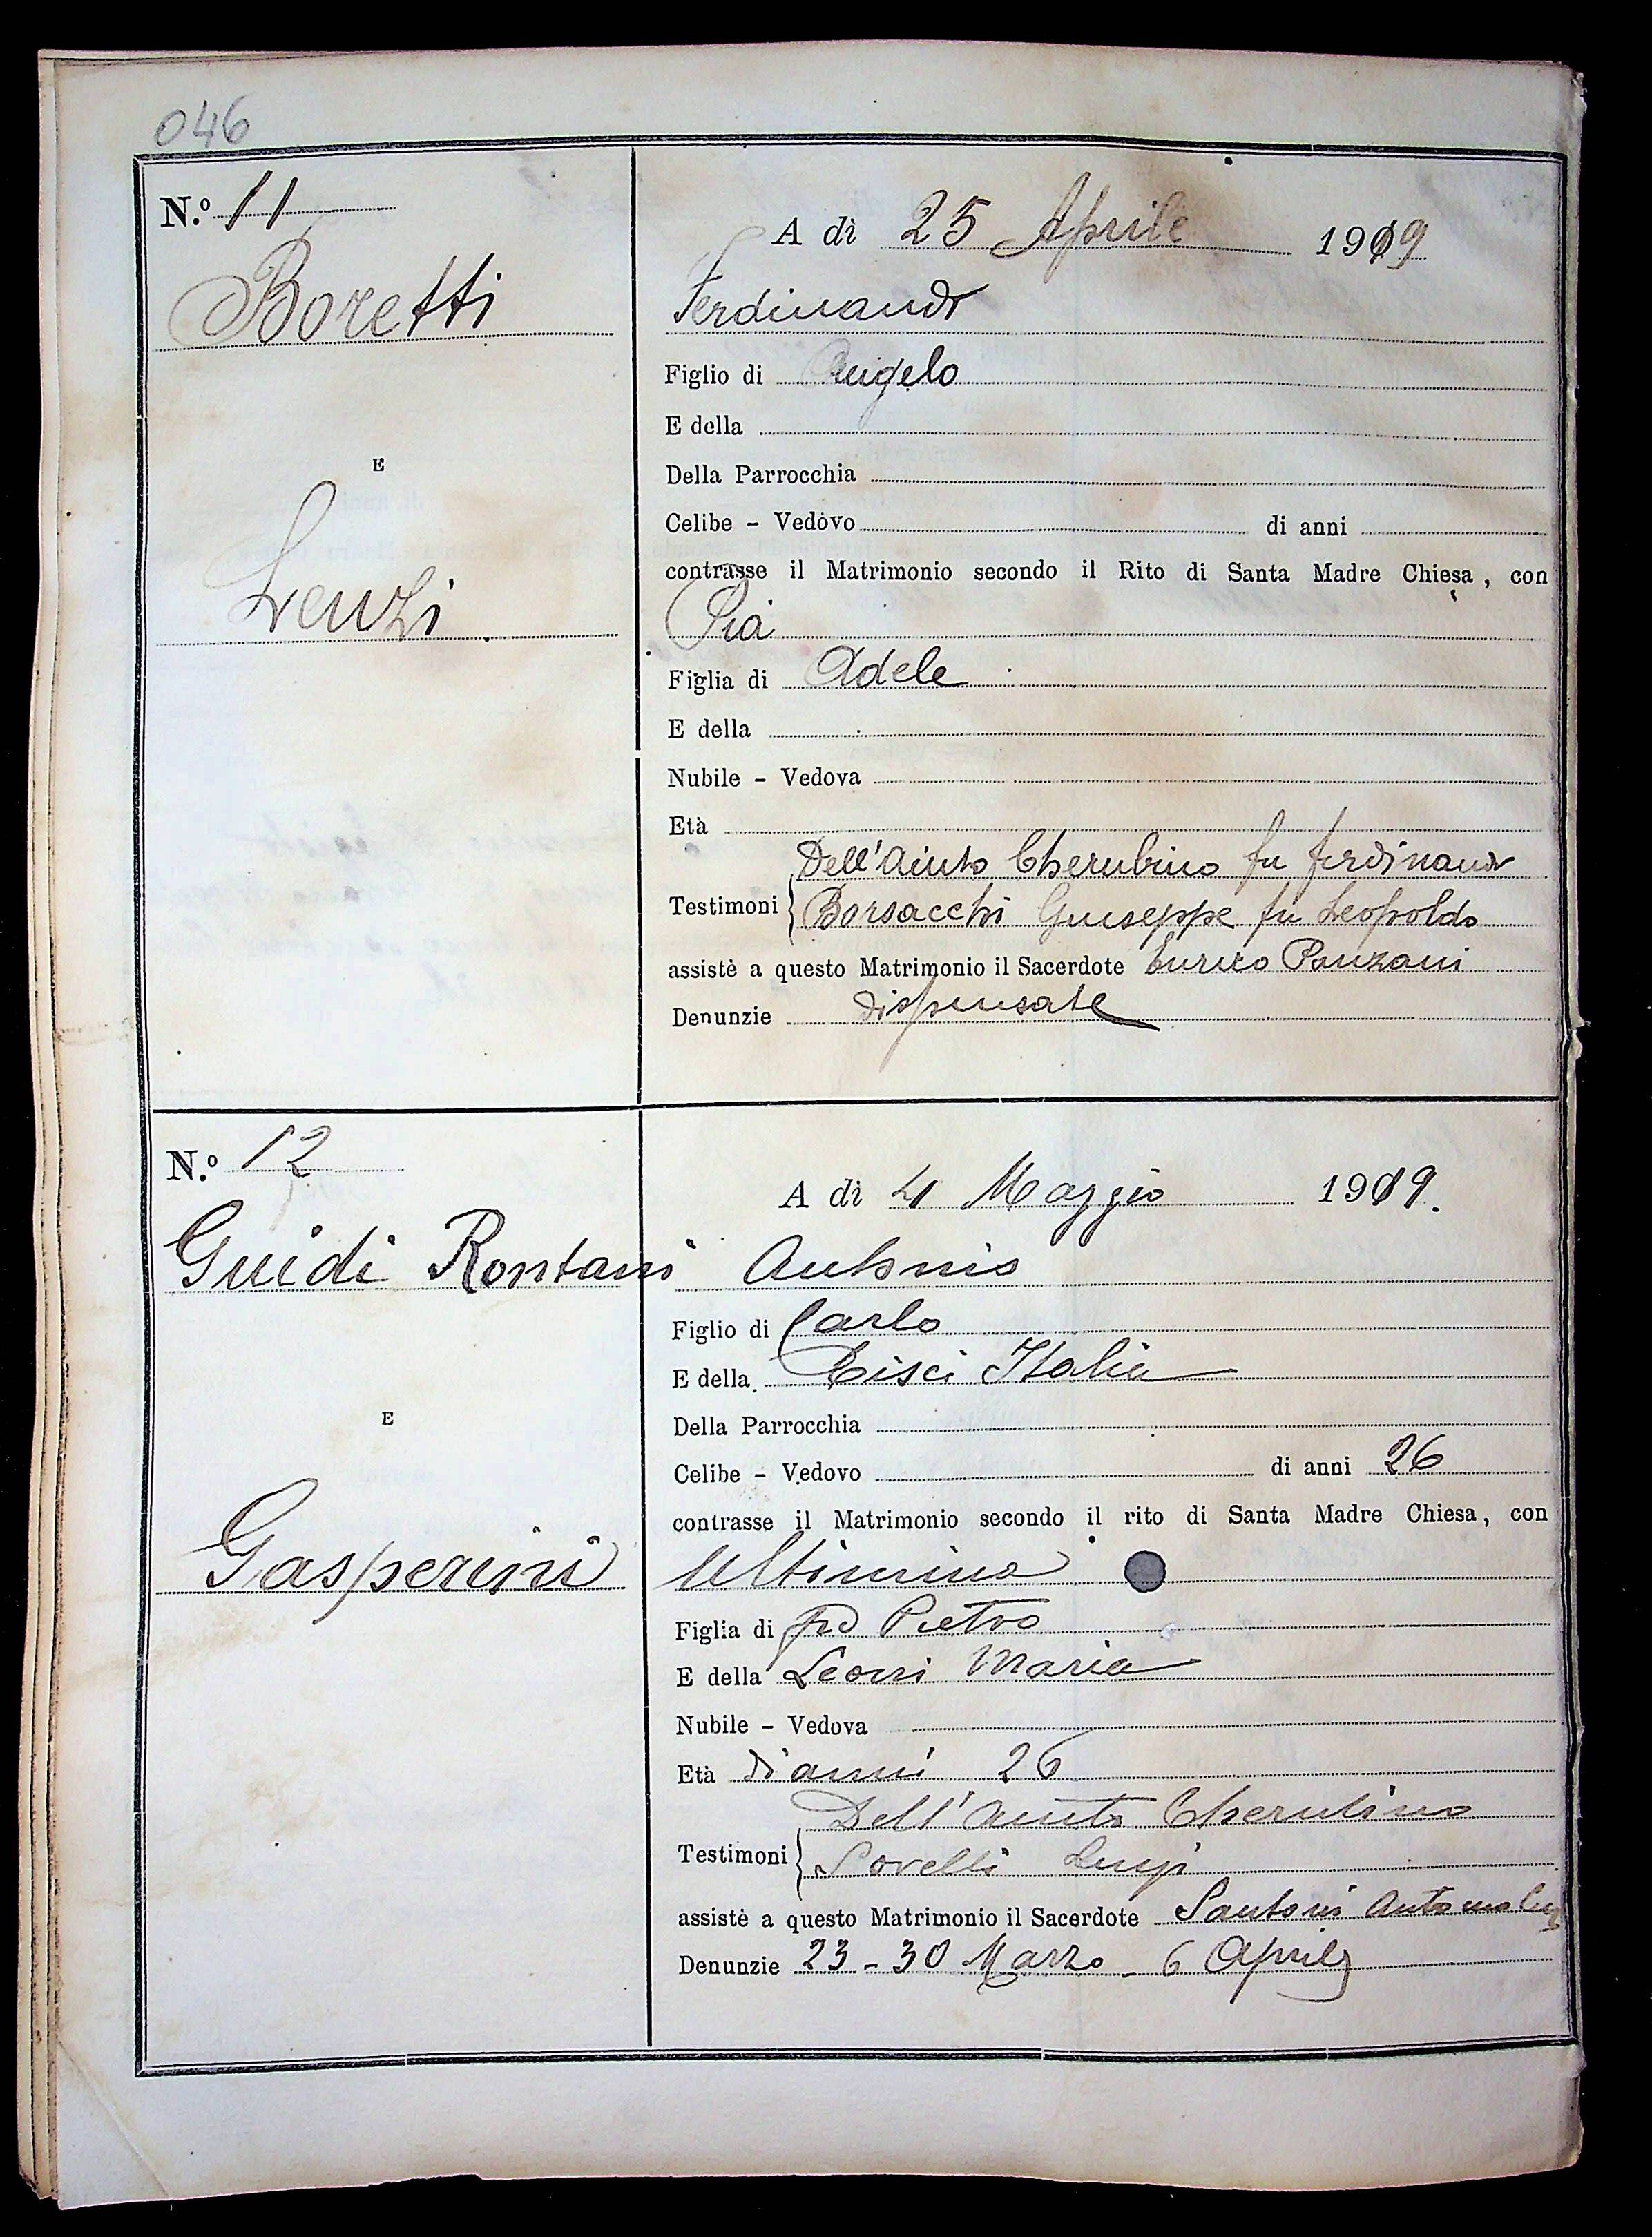 046
N.º 11
A dì 25 Aprile 1919
Boretti
Ferdinando
Figlio di Angelo
E della
E
Della Parrocchia
Celibe - Vedovo di anni
contrasse il Matrimonio secondo il Rito di Santa Madre Chiesa, con
Lenzi
Pia
Figlia di Adele
E della
Nubile - Vedova
Età
Dell'Aiuto Cherubino fu Ferdinando
Testimoni Borsacchi Giuseppe fu Leopoldo
assistè a questo Matrimonio il Sacerdote Enrico Panzani
Denunzie dispensate
N.º 12
A dì 4 Maggio 1919.
Guidi Rontani Antonio
Figlio di Carlo
E della Cisci Italia
E
Della Parrocchia
Celibe - Vedovo di anni 26
contrasse il Matrimonio secondo il rito di Santa Madre Chiesa, con
Gasperini
Ultimina
Figlia di fu Pietro
E della Leoni Maria
Nubile - Vedova
Età di anni 26
Dell'Aiuto Cherubino
Testimoni Lovelli Luigi
assistè a questo Matrimonio il Sacerdote Santoni
Denunzie 23 - 30 Marzo - 6 Aprile